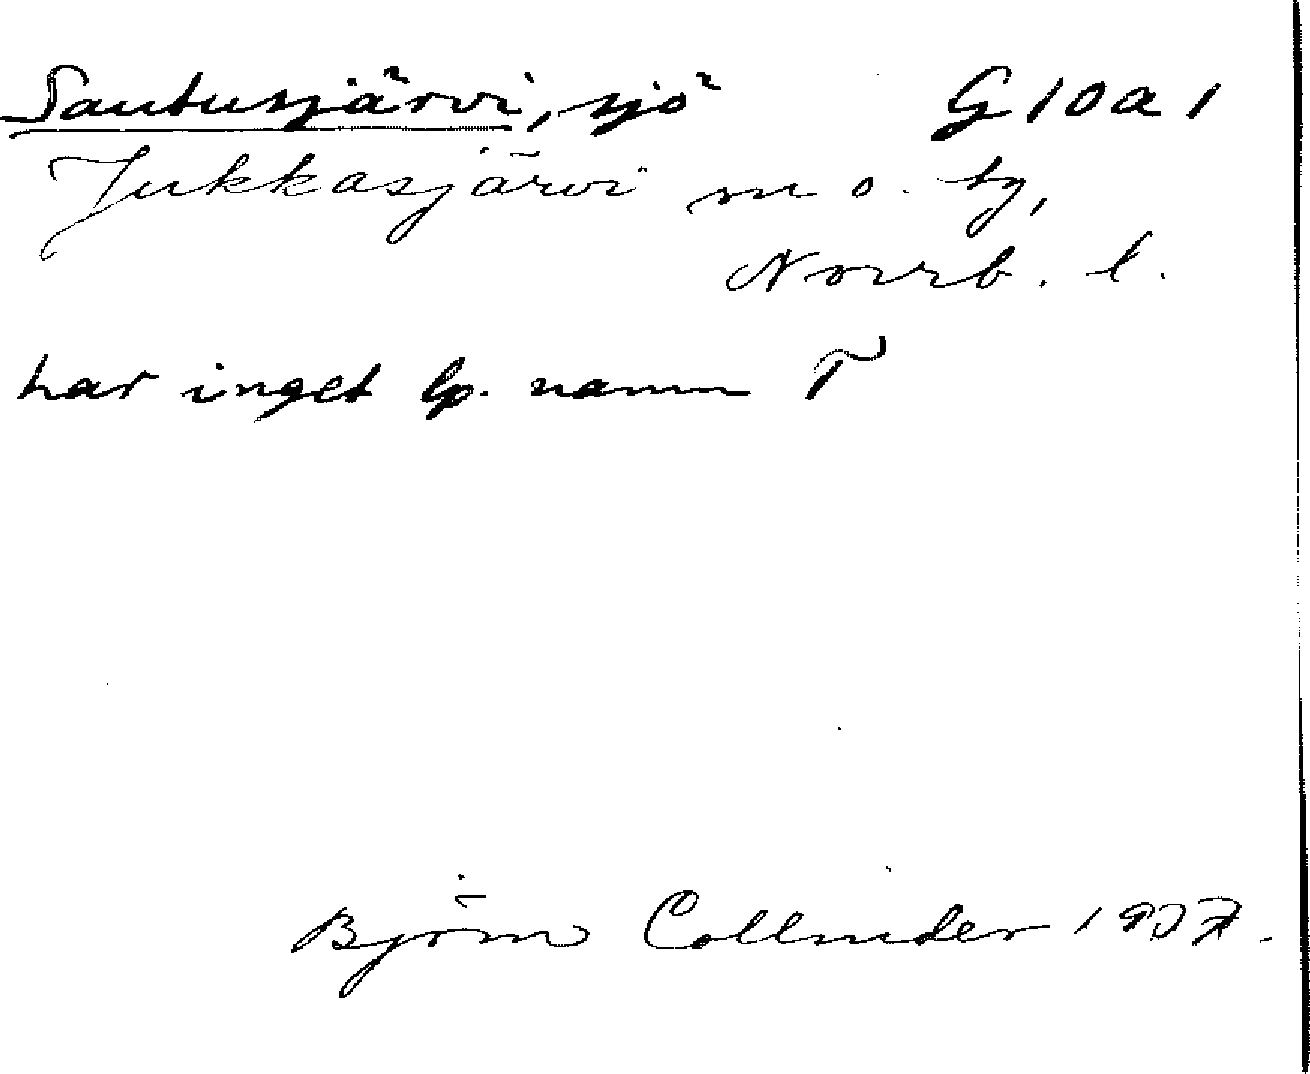 Sautusjärvi, sjö G10a1
Jukkasjärvi sn o. tg,
Norrb. l.
har inget lp. namn T
Björn Collinder